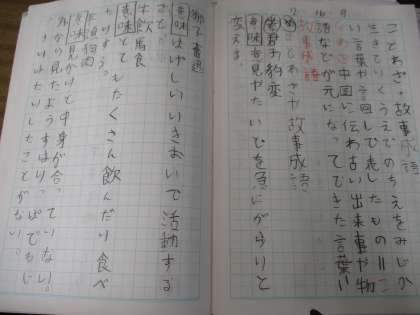 ことわざ・故事成語
生きていくうえでのちえをみじか
い言葉や言い回しで表したもの=こ
とわざ 中国に伝わる古い出来事や物
語などが元になってできた言葉=
故事成語
ことわざや故事成語
君子豹変
意味 意見やたいどを急にがらりと
変える。
獅子奮迅
意味 はげしいいきおいで活動する
こと。
牛飲馬食
意味 とてもたくさん飲んだり食べ
たりする。
羊頭狗肉
意味 見かけと中身が合っていない。
外から見たようすはりっぱでもじ
っさいはたいしたことがない。